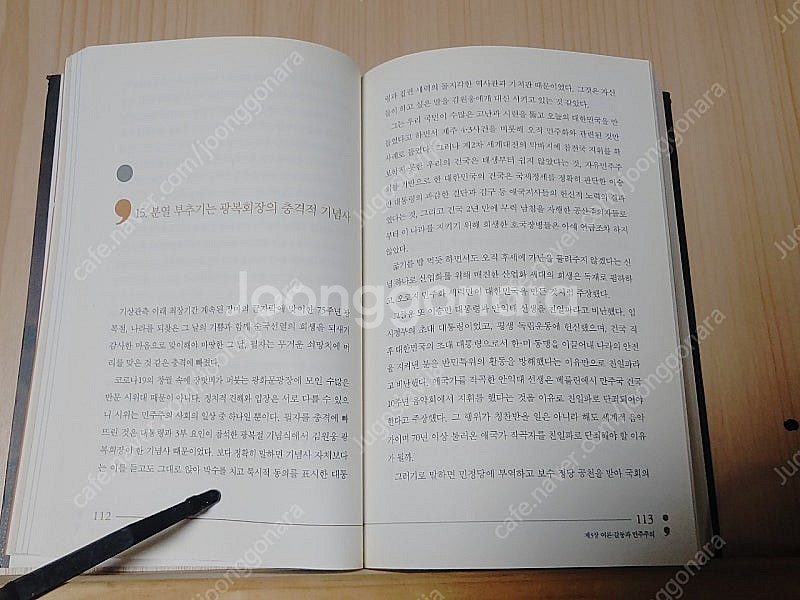 15. 분열 부추기는 광복회장의 충격적 기념사
기상관측 이래 최장기간 계속된 장마의 끝자락에 맞이한 75주년 광
복절, 나라를 되찾은 그 날의 기쁨과 함께 순국선열의 희생을 되새기
감사한 마음으로 맞이해야 마땅한 그 날, 필자는 무거운 쇠망치에 머
리를 맞은 것 같은 충격에 빠졌다.
코로나19의 창궐 속에 장맛비가 퍼붓는 광화문광장에 모인 수많은
반문 시위대 때문이 아니다. 정치적 견해와 입장은 서로 다를 수 있으
니 시위는 민주주의 사회의 일상 중 하나일 뿐이다. 필자를 충격에 빠
뜨린 것은 대통령과 3부 요인이 참석한 광복절 기념식에서 김원웅 광
복회장이 한 기념사 때문이었다. 보다 정확히 말하면 기념사 자체보다
는 이를 듣고도 그대로 앉아 박수를 치고 묵시적 동의를 표시한 대통
112
령과 집권 세력의 몰지각한 역사관과 가치관 때문이었다. 그것은 자신
들이 하고 싶은 말을 김원웅에게 대신 시키고 있는 것 같았다.
그는 우리 국민이 수많은 고난과 시련을 뚫고 오늘의 대한민국을 만
들었다고 하면서 제주 4·3사건을 비롯해 오직 민주화와 관련된 것만
사례로 들었다. 그러나 제2차 세계대전의 막바지에 참전국 지위를 확
보하지 못한 우리의 건국은 태생부터 쉽지 않았다는 것, 자유민주주
의를 기반으로 한 대한민국의 건국은 국제정세를 정확히 판단한 이승
만 대통령의 과감한 결단과 김구 등 애국지사들의 헌신적 노력의 결과
였다는 것, 그리고 건국 2년 만에 무력 남침을 자행한 공산주의자들로
부터 이 나라를 지키기 위해 희생한 호국장병들은 아예 언급조차 하지
않았다.
굶기를 밥 먹듯 하면서도 오직 후세에 가난을 물려주지 않겠다는 신
념 하나로 산업화를 위해 매진한 산업화 세대의 희생은 독재로 폄하하
고 오로지 민주화 세력만이 대한민국을 만든 것처럼 주장했다.
그는 또 이승만 대통령과 안익태 선생을 친일파라고 비난했다. 임
시정부의 초대 대통령이었고, 평생 독립운동에 헌신했으며, 건국 직
후 대한민국의 초대 대통령으로서 한·미 동맹을 이끌어내 나라의 안전
을 지켜낸 분을 반민특위의 활동을 방해했다는 이유만으로 친일파라
고 비난했다. 애국가를 작곡한 안익태 선생은 베를린에서 만주국 건국
10주년 음악회에서 지휘를 했다는 것을 이유로 친일파로 단죄되어야
한다고 주장했다. 그 행위가 칭찬받을 일은 아니라 해도 세계적 음악
가이며 70년 이상 불러온 애국가 작곡자를 친일파로 단죄해야 할 이유
가 될까.
그러기로 말하면 민정당에 부역하고 보수 정당 공천을 받아 국회의
113
제3장 이론 갈등과 민주주의
cafe.naver.com/joonggonara
joonggonara